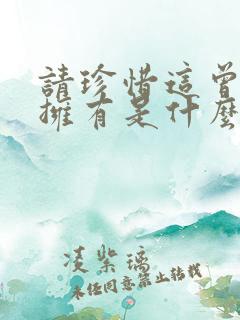 請珍惜這曾
擁有是什麼
凌紫璃
未經同意禁止轉載